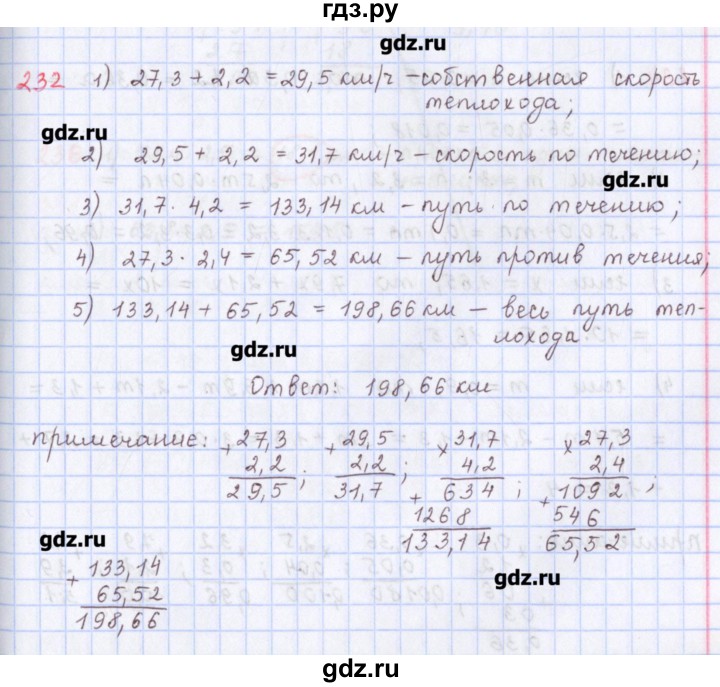 гдз.ру
gdz.ru
232 1) 27,3 + 2,2 = 29,5 км/ч - собственная скорость
теплохода;
gdz.ru
2) 29,5 + 2,2 = 31,7 км/ч - скорость по течению;
gdz.ru
3) 31,7 · 4,2 = 133,14 км - путь по течению;
4) 27,3 · 2,4 = 65,52 км - путь против течения;
5) 133,14 + 65,52 = 198,66 км - весь путь теп-
лохода
gdz.ru
Ответ: 198,66 км
gdz.ru
примечание: + 27,3 + 29,5 × 31,7 × 27,3
2,2 2,2 4,2 2,4
29,5; 31,7; + 634; + 1092;
1268 546
133,14 65,52
gdz.ru
gdz.ru
+ 133,14
65,52
198,66
gdz.ru